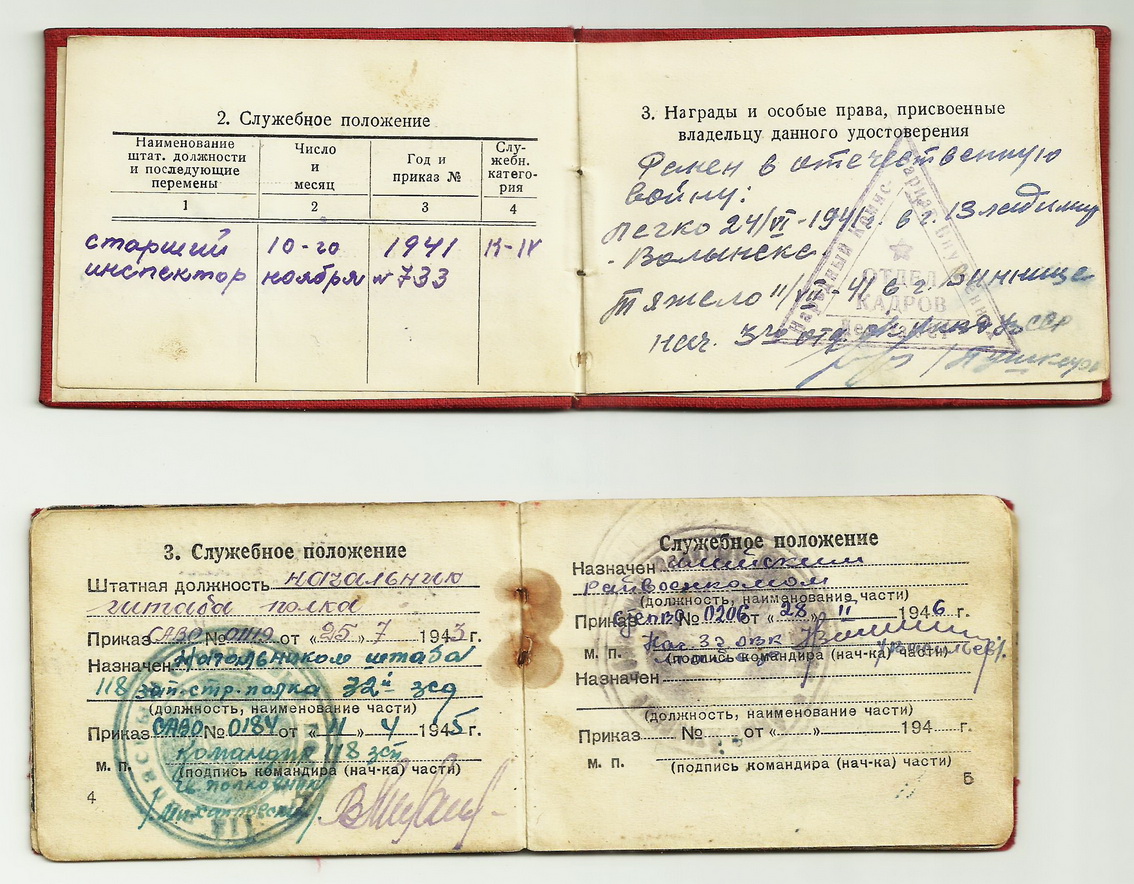 2. Служебное положение
Наименование штат. должности и последующие перемены
Число и месяц
Год и приказ №
Служебн. категория
1 2 3 4
старший 10-го 1941 К-IV
инспектор ноября №733
3. Награды и особые права, присвоенные
владельцу данного удостоверения
Ранен в отечественную
войну:
легко 24/VI-1941 в г. Владимир
-Волынске.
Тяжело 11/VII-41 в г. Виннице
нач. 3го отд. УССР
Народный Комиссариат Внутренних
ОТДЕЛ
КАДРОВ
3. Служебное положение
Штатная должность начальник
штаба полка
Приказ САВО № 0119 от «25» 7 1943 г.
Назначен Начальником штаба
118 зап. стр. полка 32й зсд
(должность, наименование части)
Приказ САВО № 0184 от «11» 4 1945 г.
Командир 118 зсп
м. п. (подпись командира (нач-ка) части)
полковник
4
Служебное положение
Назначен
райвоенкомом
(должность, наименование части)
Приказ № 0206 «28» II 1946 г.
м. п. (подпись командира (нач-ка) части)
Назначен
(должность, наименование части)
Приказ № от « » 194 г.
м. п. (подпись командира (нач-ка) части)
5